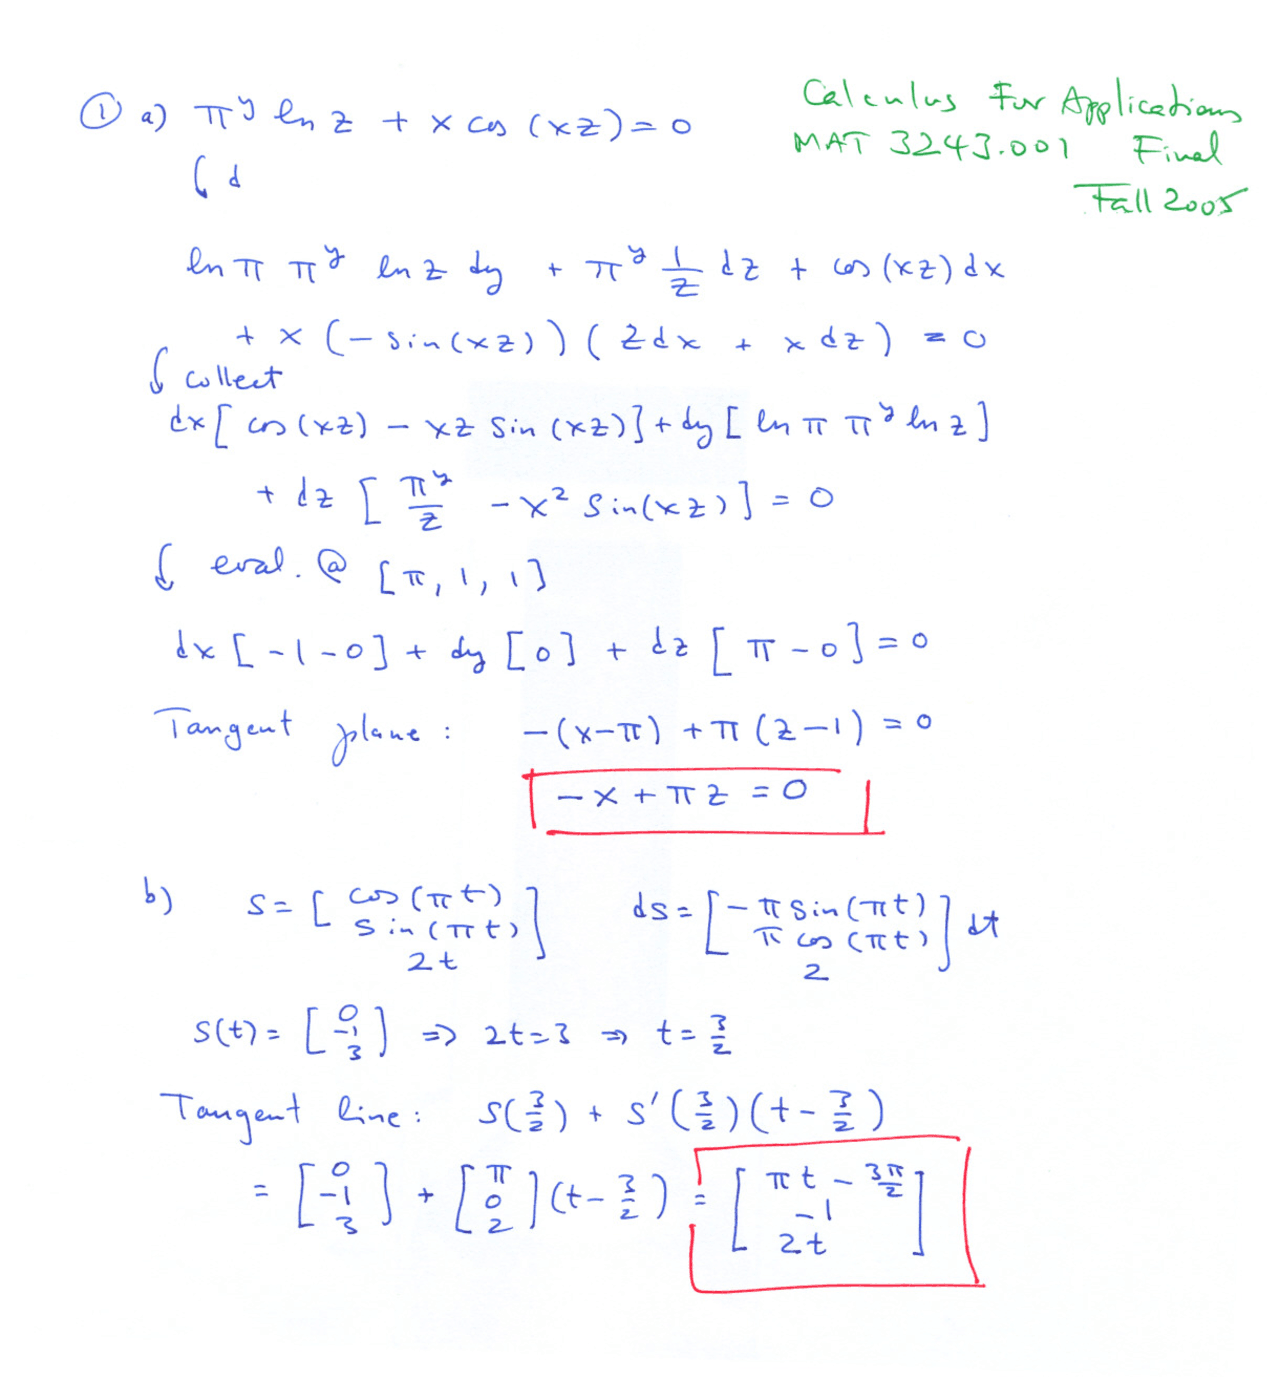 Calculus For Applications
MAT 3243.001 Final
Fall 2005
① a) π^y ln z + x cos (xz) = 0
↓ d
ln π π^y ln z dy + π^y 1/z dz + cos (xz) dx
+ x (- sin(xz)) (zdx + x dz) = 0
↓ collect
dx [ cos (xz) - xz sin (xz)] + dy [ ln π π^y ln z ]
+ dz [ π^y/z - x² sin(xz) ] = 0
↓ eval. @ [π, 1, 1]
dx [-1-0] + dy [0] + dz [π-0] = 0
Tangent plane : -(x-π) + π (z-1) = 0
-x + π z = 0
b) s = [ cos (πt) sin (πt) 2t ] ds = [ -π sin(πt) π cos (πt) 2 ] dt
s(t) = [ 0 -1 3 ] => 2t=3 => t = 3/2
Tangent line : s(3/2) + s'(3/2)(t - 3/2)
= [ 0 -1 3 ] + [ π 0 2 ] (t - 3/2) = [ πt - 3π/2 -1 2t ]